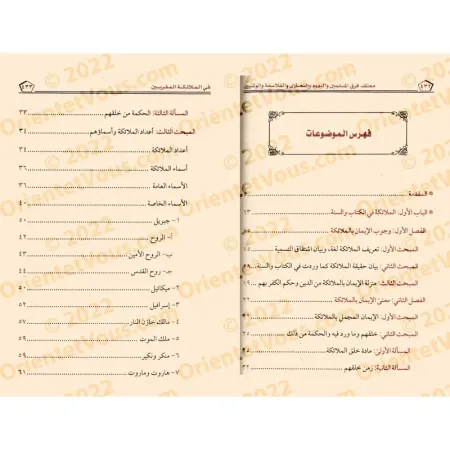 ٤٣٢
معتقد فرق المسلمين واليهود والنصارى والفلاسفة والوثنيين
فهرس الموضوعات
* المقدمة
* الباب الأول: الملائكة في الكتاب والسنة ١٣
الفصل الأول: وجوب الإيمان بالملائكة
المبحث الأول: تعريف الملائكة لغة، وبيان اشتقاق التسمية ١٥
المبحث الثاني: بيان حقيقة الملائكة كما وردت في الكتاب والسنة
المبحث الثالث: منزلة الإيمان بالملائكة من الدين وحكم الكفر بهم
الفصل الثاني: معنى الإيمان بالملائكة
المبحث الأول: الإيمان المجمل بالملائكة
المبحث الثاني: خلقهم وما ورد فيه والحكمة من ذلك
المسألة الأولى: مادة خلق الملائكة
المسألة الثانية: زمن خلقهم ٣٢
في الملائكة المقربين
٤٣٣
المسألة الثالثة: الحكمة من خلقهم ٣٣
المبحث الثالث: أعداد الملائكة وأسماؤهم ٣٤
أعداد الملائكة ٣٤
أسماء الملائكة ٣٦
الأسماء العامة ٣٦
الأسماء الخاصة ٤٠
١- جبريل ٥٠
أ- الروح ٤٢
ب- الروح الأمين ٤٣
ج- روح القدس ٤٤
٢- ميكائيل ٥٠
٣- إسرافيل ٥٢
٤- مالك خازن النار ٥٧
٥- ملك الموت ٥٩
٦- منكر ونكير ٥٩
٧- هاروت وماروت ٦١
© 2022
OrientetVous.com